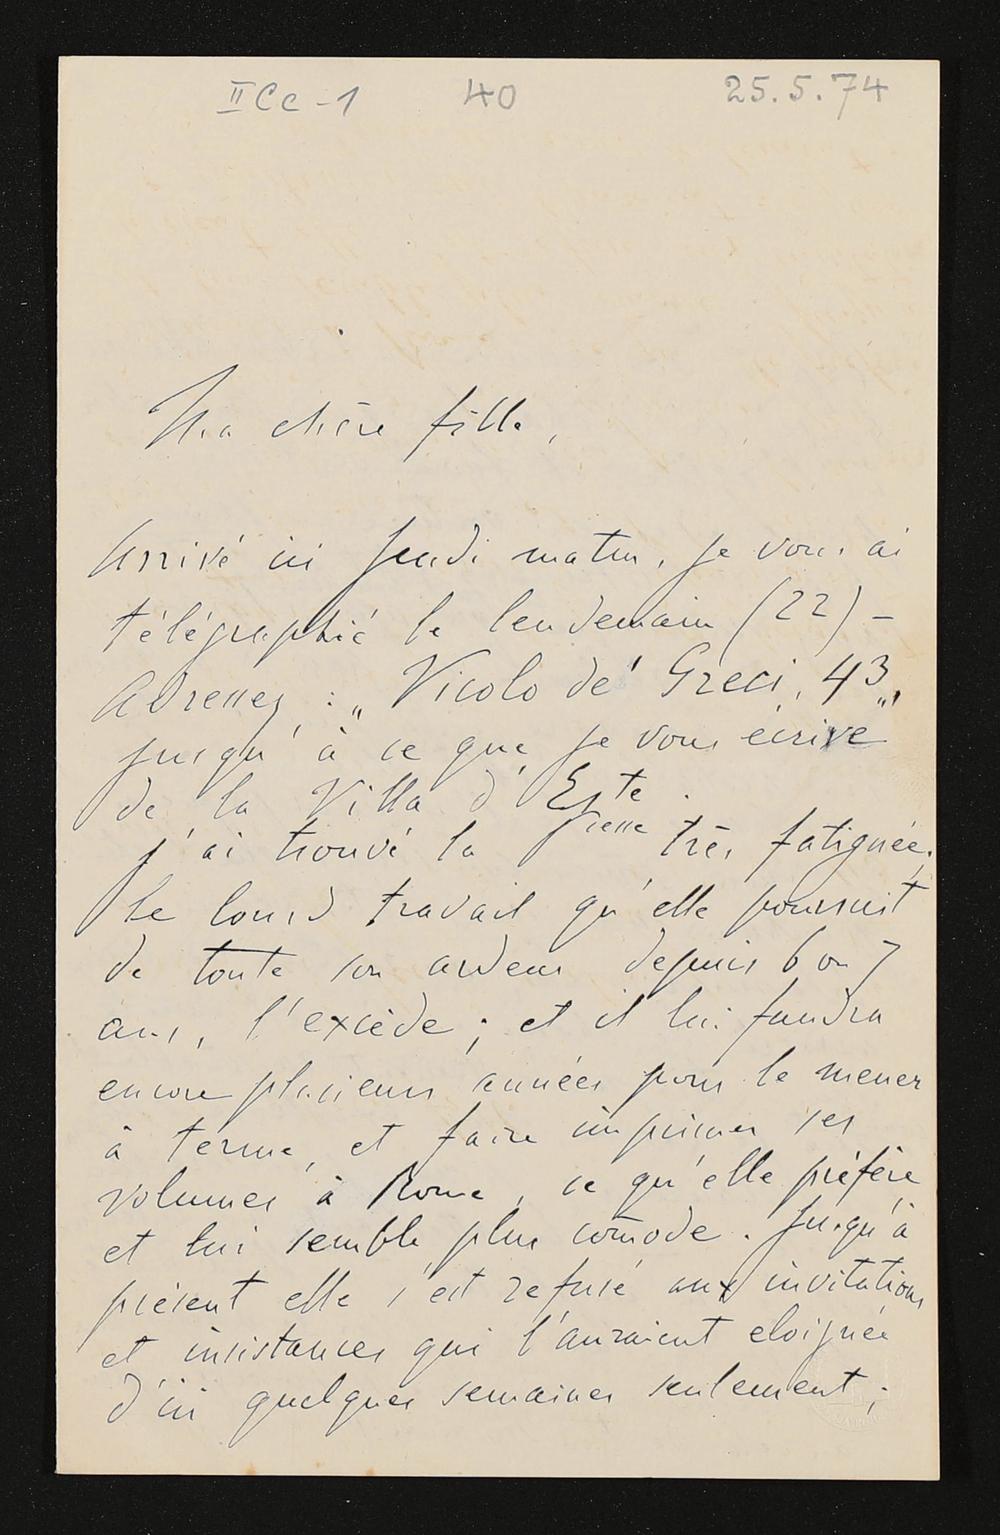 IICc-1 40 25.5.74
Ma chère fille,
Arrivé ici Jeudi matin, je vous ai
télégraphié le lendemain (22) –
Adressez : „Vicolo de' Greci, 43„,
jusqu'à ce que je vous écrive
de la Villa d'Este.
J'ai trouvé la Psse très fatiguée.
Le lourd travail qu'elle poursuit
de toute son ardeur depuis 6 ou 7
ans, l'excède ; et il lui faudra
encore plusieurs années pour le mener
à terme, et faire imprimer ses
volumes à Rome, ce qu'elle préfère
et lui semble plus com̄ode. Jusqu'à
présent elle s'est refusé aux invitations
et insistances qui l'auraient eloignée
d'ici quelques semaines seulement ;